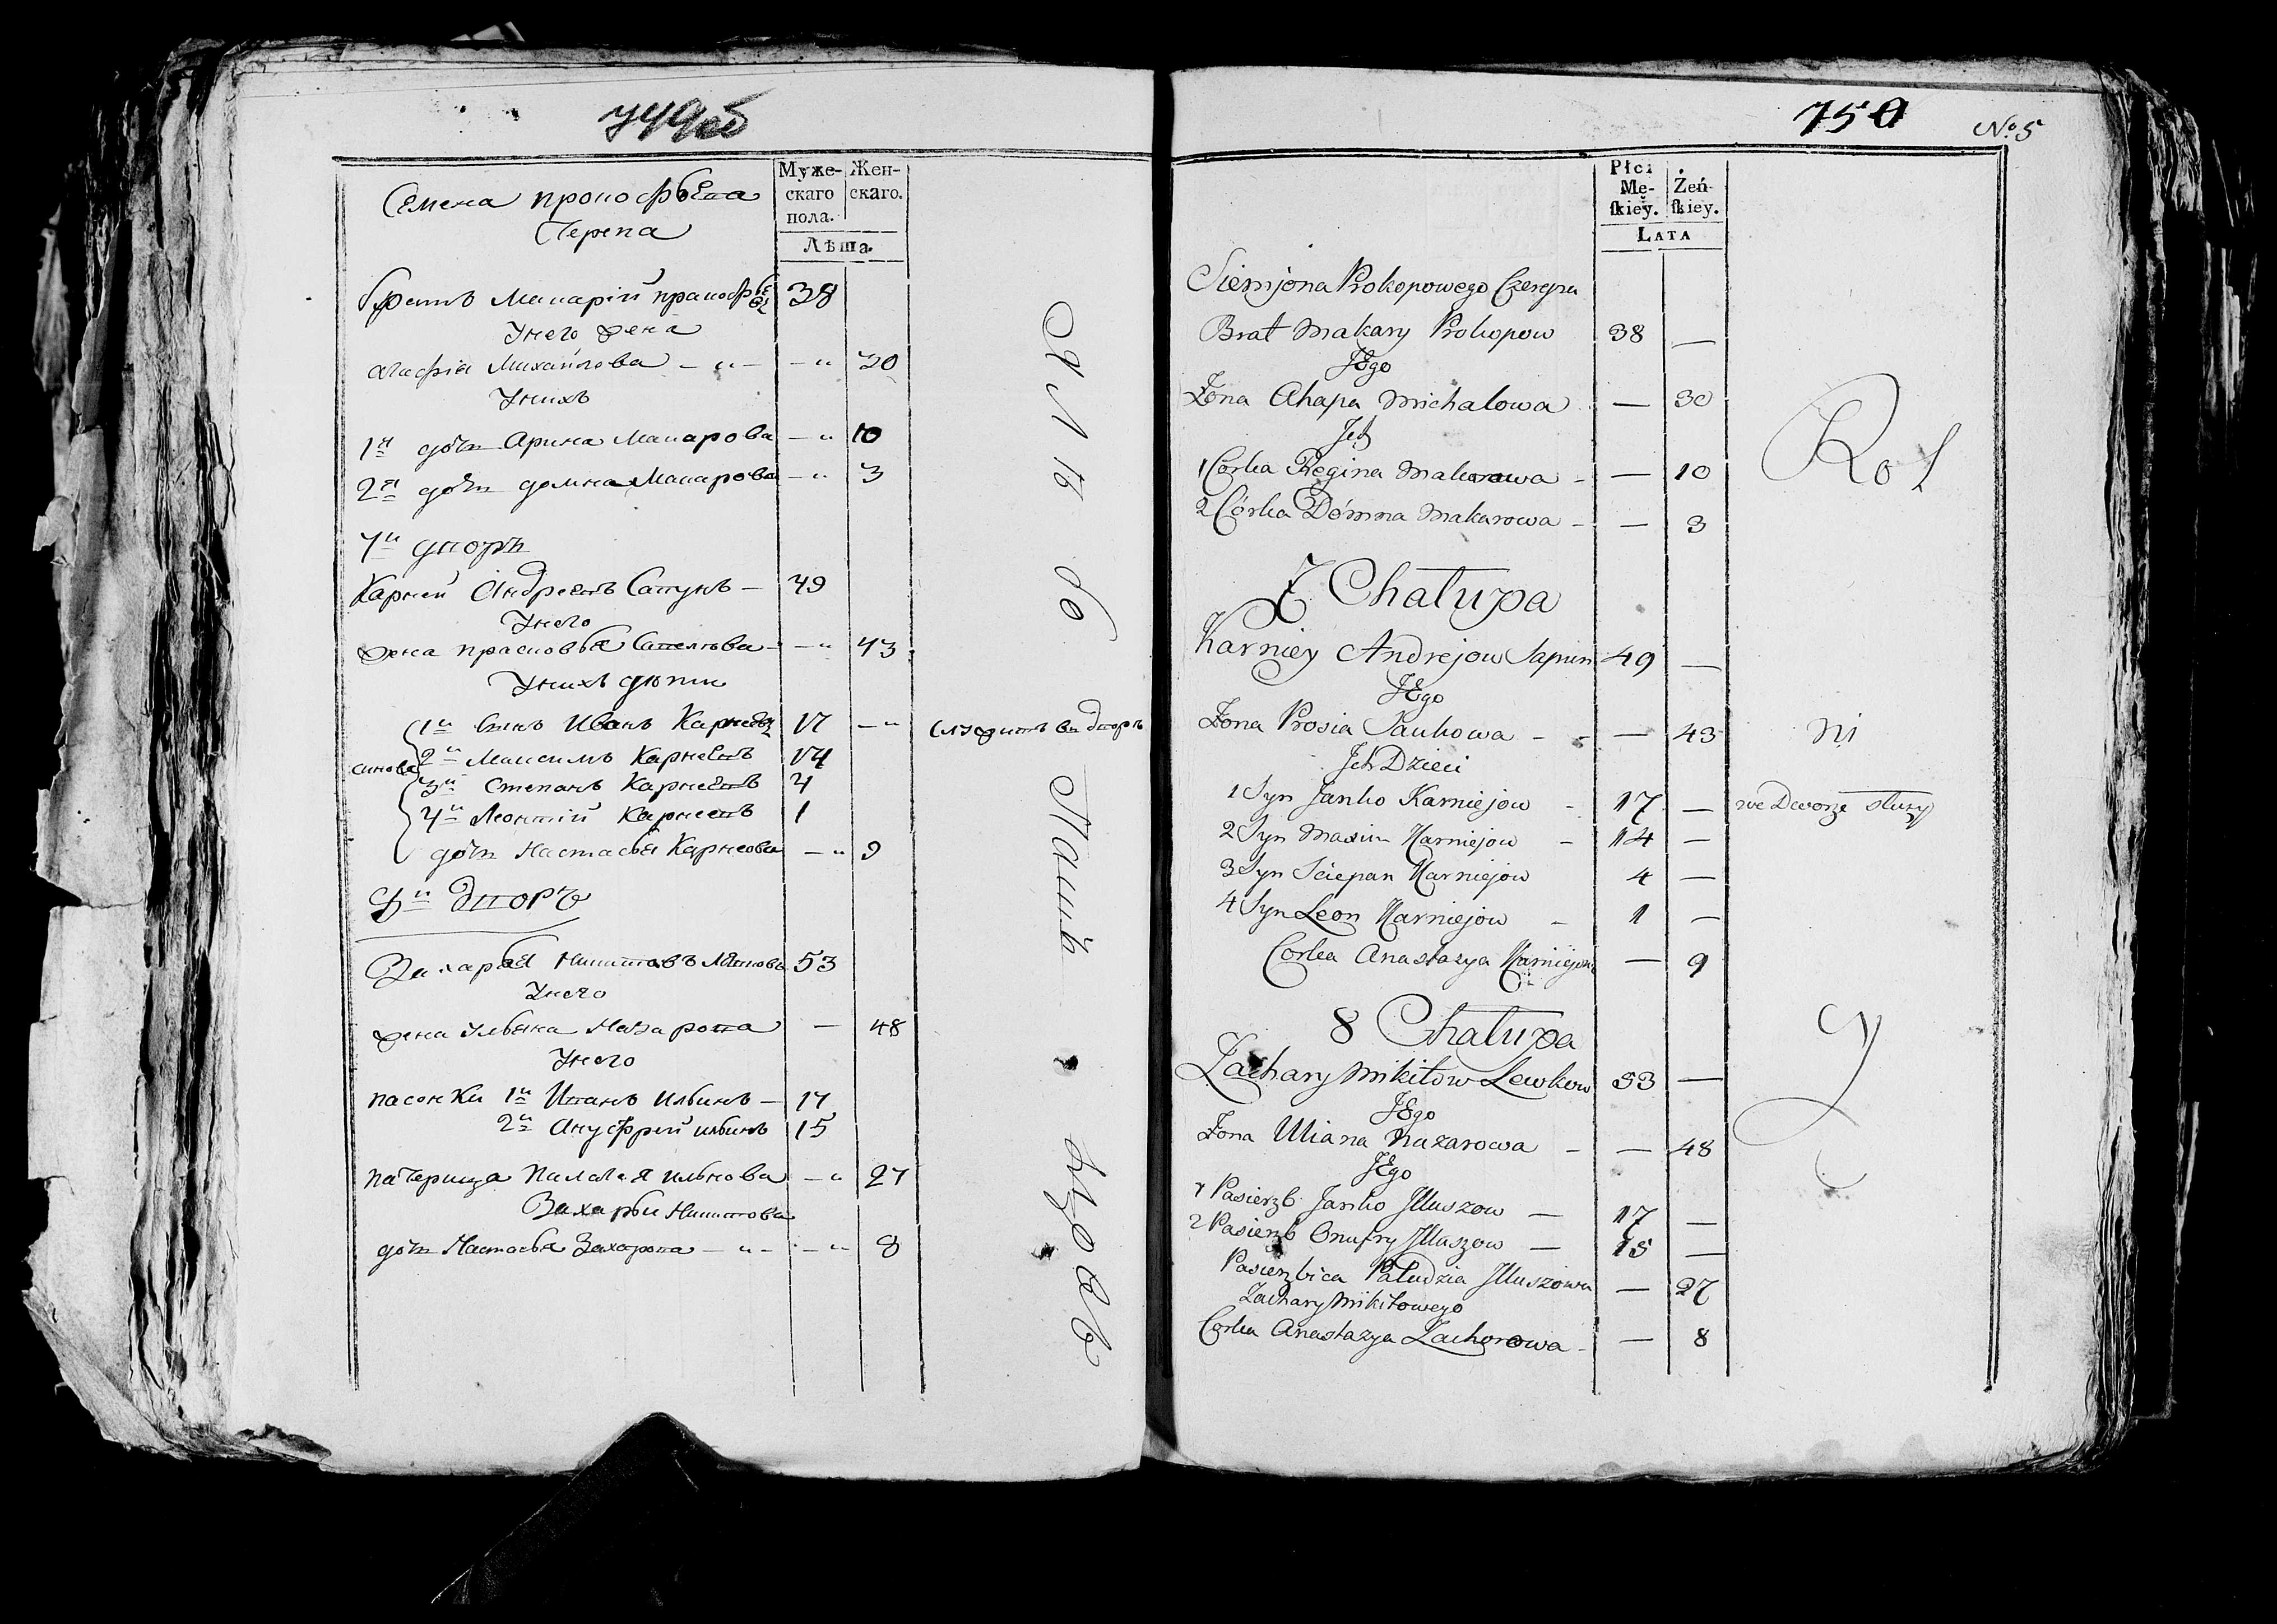 749об
Семена прокофьева
Черепа
Муже-скаго пола.
Жен-скаго.
Лѣта.
братъ Макарій прокофьевъ 38
Унего жена
агафія Михайлова – „ – – „ 30
Унихъ
1я дочь Арина Макарова – „ 10
2я дочь домна Макарова – „ 3
7й дворъ
Карней Андреевъ Сапунъ – 49
Унего
жена прасковья Савельева – – „ 43
Унихъ дѣти
синовья
1й сынъ Иванъ Карнеевъ 17 – „ служитъ въ дворѣ
2й Максимъ Карнеевъ 14
3й Степанъ Карнеевъ 4
4й Леонтій Карнеевъ 1
дочь Настасья Карнеева – „ 9
8й дворъ
Захарья Никитовъ 53
Унего
жена Ульяна Назарова – 48
Унего
пасонки 1й Иванъ Ильинъ – 17
2й Ануфрей ильинъ 15
падчерица Палагея ильнова – „ 27
Захарьи Никитова
дочь Настасья Захарова – „ – – „ 8
750
No 5
Płci Mę-ſkiey.
Żeń-ſkiey.
LATA
Siemjona Prokopowego Czerepa
Brat Makary Prokopow 38 —
JEgo
Żona Ahapa Michalowa — 30
Jch
1 Corka Regina Makarowa – — 10
2 Córka Dómna Makarowa – — 3
Rol
7 Chałupa
Karniey Andrejow Sapun 49 —
JEgo
Żona Prosia Saukowa – – — 43
ni
Jch Dzieci
1 Syn Janko Karniejow – 17 — we Dworze służy
2 Syn Maxim Karniejow – 14 —
3 Syn Sciepan Karniejow 4 —
4 Syn Leon Karniejow – 1 —
Corka Anastazya Karniejowa — 9
8 Chałupa
Zachary Mikitow Lewkow 53 —
JEgo
Żona Uliana Nazarowa – — 48
JEgo
1 Pasierzb Janko Jlluszow — 17 —
2 Pasierzb Onufry Jlluszow — 15 —
Pasierzbica Paludzia Jlluszowa — 27
Zachary Mikitowego
Corka Anastazya Zachorowa – — 8